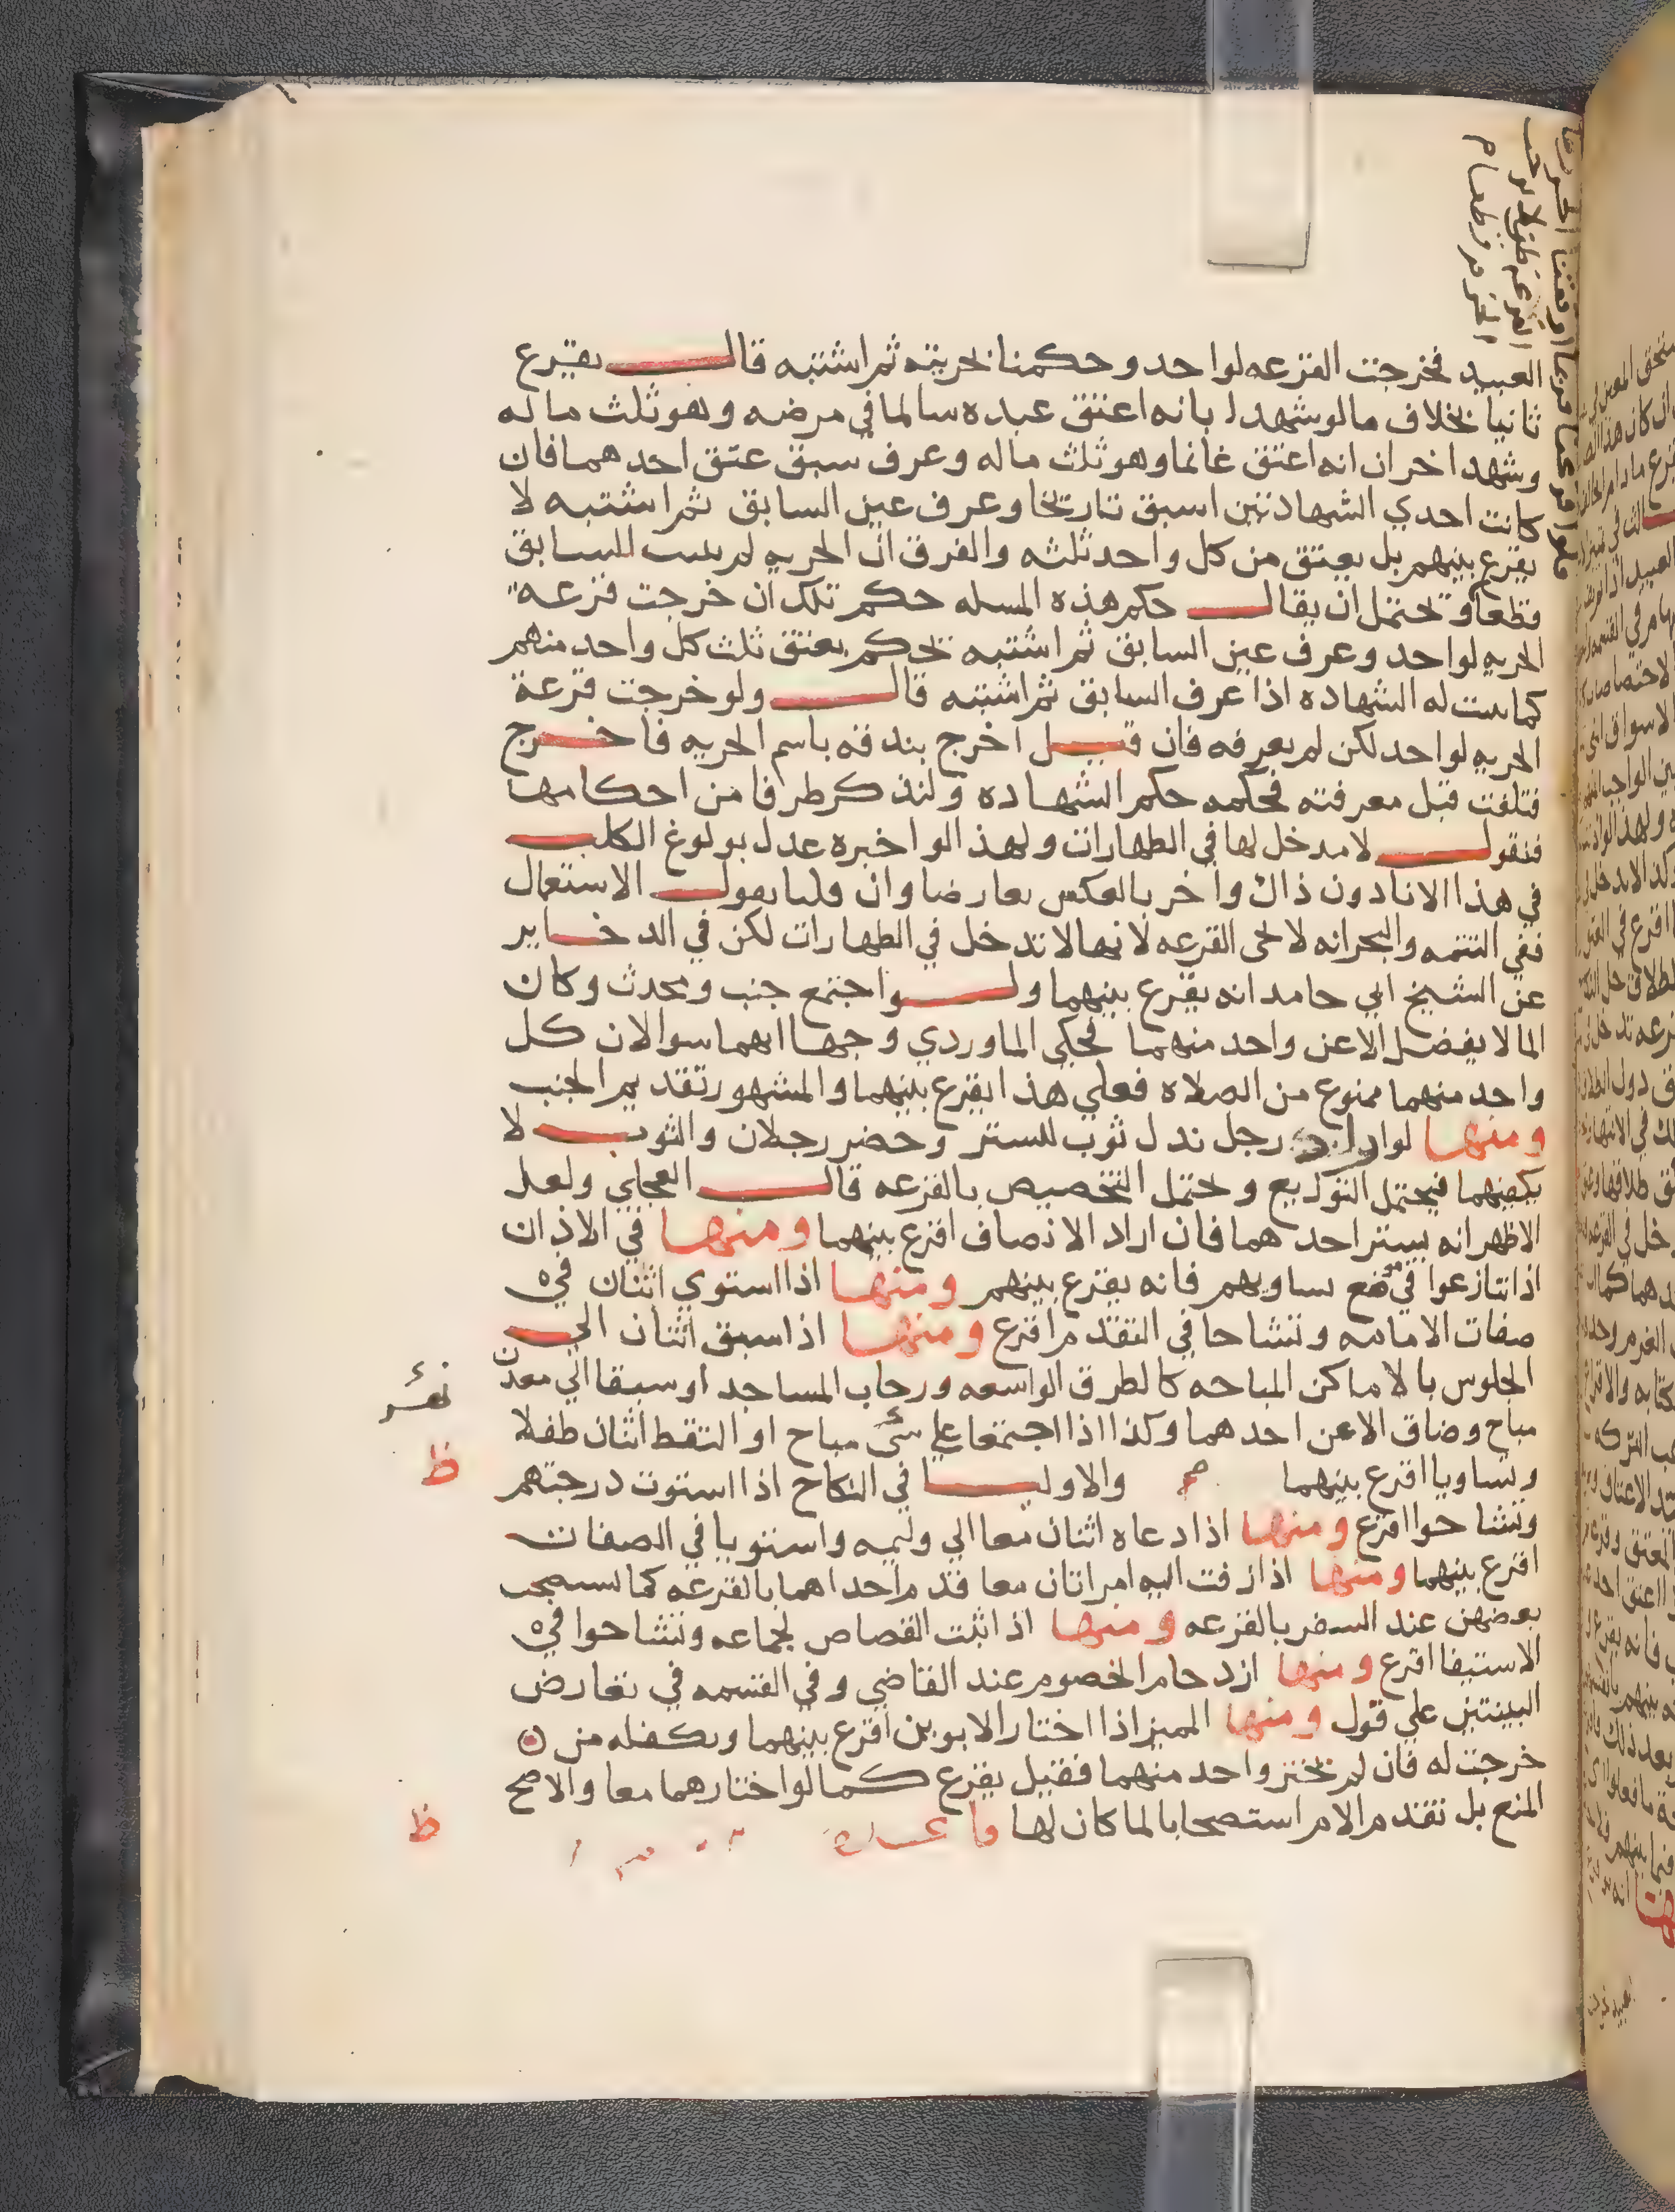 العبيد فخرجت القرعه لواحد وحكمنا بحريته ثم اشتبه قال يقرع
ثانيا بخلاف مالو شهدا بانه اعتق عبده سالما في مرضه وهو ثلث ماله
وشهد اخران انه اعتق غانما وهو ثلث ماله وعرف سبق عتق احدهما فان
كانت احدي الشهادتين اسبق تاريخا وعرف عين السابق ثم اشتبه لا
يقرع بينهم بل يعتق من كل واحد ثلثه والفرق ان الحريه لم يثبت للسابق
قطعا ويحتمل ان يقال حكم هذه المسله حكم تلك ان خرجت قرعة
الحريه لواحد وعرف عين السابق ثم اشتبه يحكم بعتق ثلث كل واحد منهم
كما ثبت له الشهاده اذا عرف السابق ثم اشتبه قال ولو خرجت قرعة
الحريه لواحد لكن لم يعرفه فان قيل اخرج بندقه باسم الحريه فاخرج
فتلفت قبل معرفته فحكمه حكم الشهاده ولنذكر طرفا من احكامها
فنقول لا مدخل لها في الطهارات ولهذا لو اخبره عدل بولوغ الكلب
في هذا الانا دون ذاك واخر بالعكس تعارضا وان قلنا بقول الاستعمال
ففي التتمه والبحر انه لا تجى القرعه لانها لا تدخل في الطهارات لكن في الدخاير
عن الشيخ ابي حامد انه يقرع بينهما ولو اجتمع جنب ومحدث وكان
الما لا يفضل الا عن واحد منهما فحكي الماوردي وجها انهما سوا لان كل
واحد منهما ممنوع من الصلاه فعلي هذا يقرع بينهما والمشهور تقديم الجنب
ومنها لو اراد رجل بذل ثوب للستر وحضر رجلان والثوب لا
يكفيهما فيحتمل التوزيع ويحتمل التخصيص بالقرعه قال العجلي ولعل
الاظهر انه يستر احدهما فان اراد الانصاف اقرع بينهما ومنها في الاذان
اذا تنازعوا في موضع تساويهم فانه يقرع بينهم ومنها اذا استوي اثنان في
صفات الامامه وتشاحا في التقدم اقرع ومنها اذا سبق اثنان الي
الجلوس بالاماكن المباحه كالطرق الواسعه ورحاب المساجد او سبقا الي معدن
مباح وضاق الا عن احدهما وكذا اذا اجتمعا علي شئ مباح او التقط اثنان طفلا
وتساويا اقرع بينهما والاوليا في النكاح اذا استوت درجتهم
وتشاحوا اقرع ومنها اذا دعاه اثنان معا الي وليمه واستويا في الصفات
اقرع بينهما ومنها اذا زفت اليه امراتان معا قدم احداهما بالقرعه كما يستصحب
بعضهن عند السفر بالقرعه ومنها اذا ثبت القصاص لجماعه وتشاحوا في
الاستيفا اقرع ومنها ازدحام الخصوم عند القاضي وفي القسمه في تعارض
البينتين علي قول ومنها المميز اذا اختار الابوين اقرع بينهما ويكفله من
خرجت له فان لم يختر واحد منهما فقيل يقرع كما لو اختارهما معا والاصح
المنع بل تقدم الام استصحابا لما كان لها
ظ
ظ